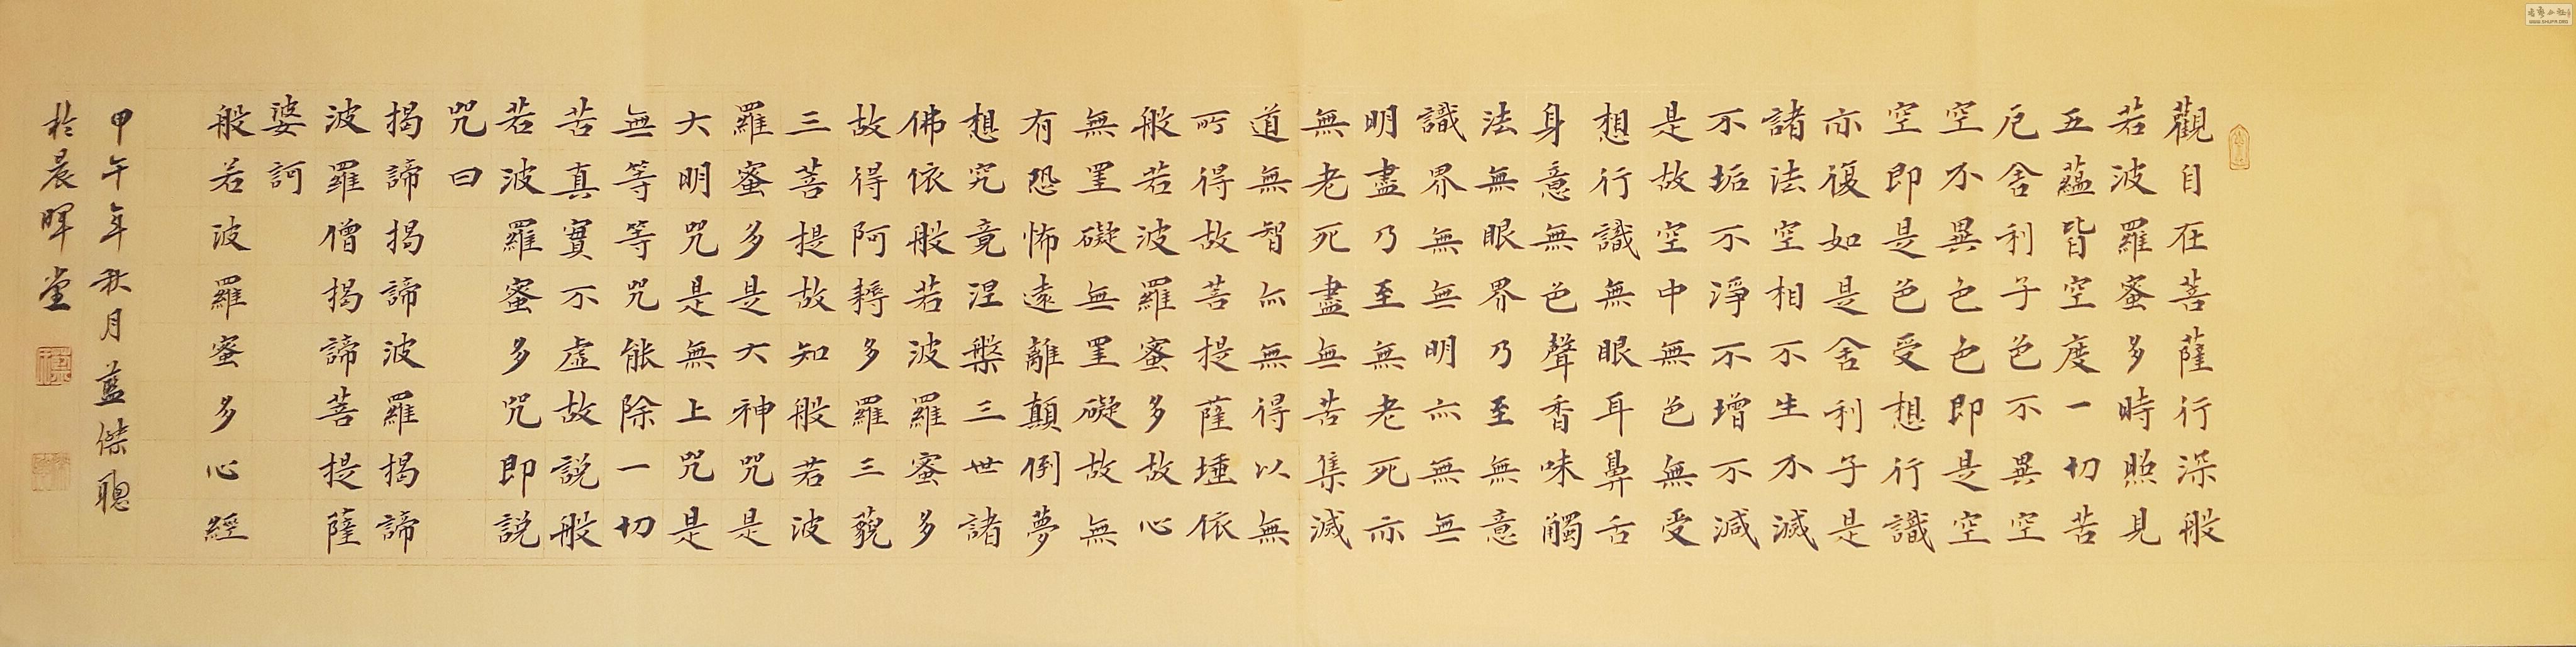 觀自在菩薩行深般
若波羅蜜多時照見
五蘊皆空度一切苦
厄舍利子色不異空
空不異色色即是空
空即是色受想行識
亦復如是舍利子是
諸法空相不生不滅
不垢不淨不增不減
是故空中無色無受
想行識無眼耳鼻舌
身意無色聲香味觸
法無眼界乃至無意
識界無無明亦無無
明盡乃至無老死亦
無老死盡無苦集滅
道無智亦無得以無
所得故菩提薩埵依
般若波羅蜜多故心
無罣礙無罣礙故無
有恐怖遠離顛倒夢
想究竟涅槃三世諸
佛依般若波羅蜜多
故得阿耨多羅三藐
三菩提故知般若波
羅蜜多是大神咒是
大明咒是無上咒是
無等等咒能除一切
苦真實不虛故說般
若波羅蜜多咒即說
咒曰
揭諦揭諦波羅揭諦
波羅僧揭諦菩提薩
婆訶
般若波羅蜜多心經
甲午年秋月藍傑聰
於晨暉堂
WWW.SHUFA.ORG